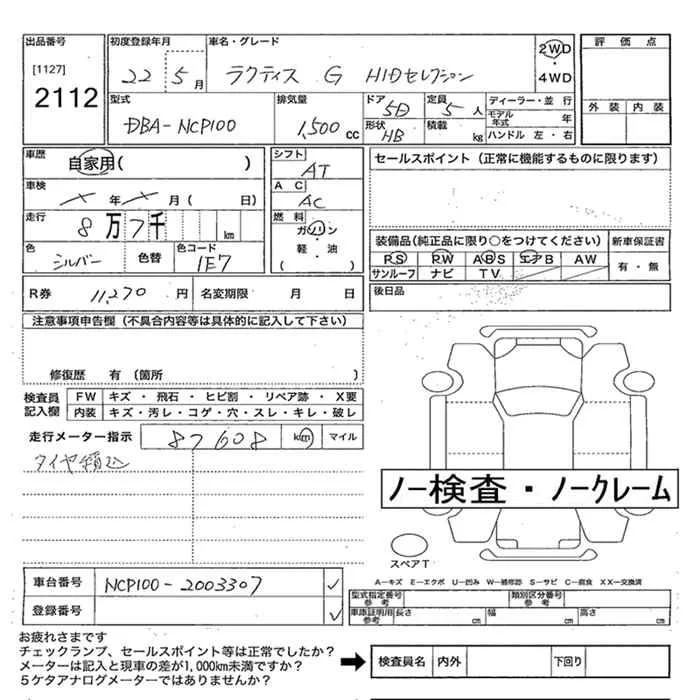 出品番号 [1127] 2112
初度登録年月 22 5月
車名・グレード ラクティス G HIDセレクション
2WD・4WD
評価点
外装 内装
型式 DBA-NCP100
排気量 1,500cc
ドア 5D
形状 HB
定員 5人
積載 kg
ディーラー・並行
モデル年式 年
ハンドル 左・右
車歴 自家用( )
車検 × 年 × 月( 日)
走行 8万7千 km
色 シルバー 色替
色コード 1E7
シフト AT
AC AC
燃料 ガソリン・軽・油 ( )
セールスポイント(正常に機能するものに限ります)
装備品(純正品に限り○をつけてください)
PS PW ABS エアB AW
サンルーフ ナビ TV
新車保証書 有・無
R券 11,270円 名変期限 月 日
後日品
注意事項申告欄(不具合内容等は具体的に記入して下さい)
修復歴 有〔箇所 〕
検査員記入欄
FW キズ・飛石・ヒビ割・リペア跡・X要
内装 キズ・汚レ・コゲ・穴・スレ・キレ・破レ
走行メーター指示 87608 km マイル
タイヤ積込
ノー検査・ノークレーム
スペアT
A−キズ E−エクボ U−凹み W−補修跡 S−サビ C−腐食 XX−交換済
車台番号 NCP100-2003307 ✓
登録番号 ✓
型式指定番号 参考
類別区分番号 参考
車庫証明用 参考 長さ cm 幅 cm 高さ cm
お疲れさまです
チェックランプ、セールスポイント等は正常でしたか?
メーターは記入と現車の差が1,000km未満ですか?
5ケタアナログメーターではありませんか?
➡ 検査員名 内外 下回り